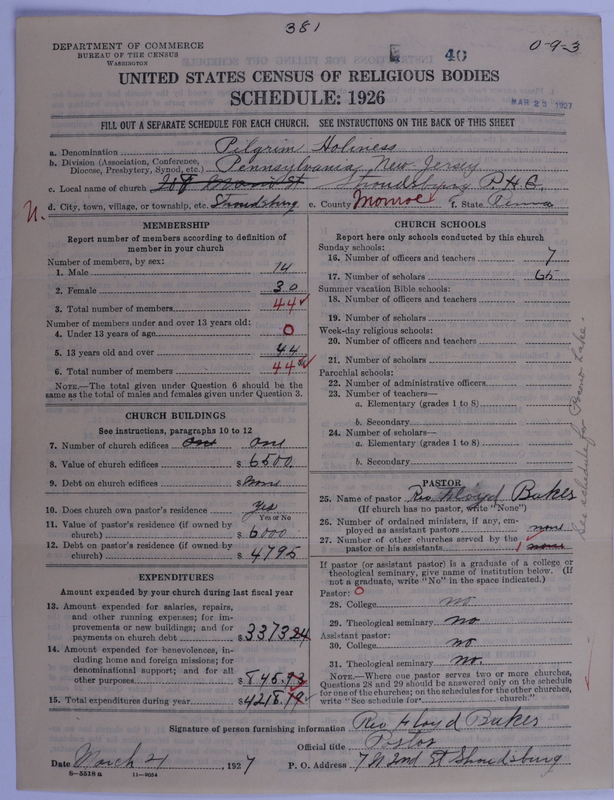 381
DEPARTMENT OF COMMERCE
BUREAU OF THE CENSUS
WASHINGTON
40
0-9-3
UNITED STATES CENSUS OF RELIGIOUS BODIES
SCHEDULE: 1926
MAR 25 1927
FILL OUT A SEPARATE SCHEDULE FOR EACH CHURCH. SEE INSTRUCTIONS ON THE BACK OF THIS SHEET
a. Denomination Pilgrim Holiness
b. Division (Association, Conference, Diocese, Presbytery, Synod, etc.) Pennsylvania, New Jersey
c. Local name of church Stroudsburg P.H.C.
n. d. City, town, village, or township, etc. Stroudsburg e. County Monroe f. State Penna
MEMBERSHIP
Report number of members according to definition of member in your church
Number of members, by sex:
1. Male 14
2. Female 30
3. Total number of members 44
Number of members under and over 13 years old:
4. Under 13 years of age 0
5. 13 years old and over 44
6. Total number of members 44
NOTE.—The total given under Question 6 should be the same as the total of males and females given under Question 3.
CHURCH BUILDINGS
See instructions, paragraphs 10 to 12
7. Number of church edifices one one
8. Value of church edifices $ 6500
9. Debt on church edifices $ none
10. Does church own pastor's residence yes
Yes or No
11. Value of pastor's residence (if owned by church) $ 6000
12. Debt on pastor's residence (if owned by church) $ 4795
EXPENDITURES
Amount expended by your church during last fiscal year
13. Amount expended for salaries, repairs, and other running expenses; for improvements or new buildings; and for payments on church debt $ 3373 24
14. Amount expended for benevolences, including home and foreign missions; for denominational support; and for all other purposes $ 845.93
15. Total expenditures during year $ 4218.19
CHURCH SCHOOLS
Report here only schools conducted by this church
Sunday schools:
16. Number of officers and teachers 7
17. Number of scholars 65
Summer vacation Bible schools:
18. Number of officers and teachers
19. Number of scholars
Week-day religious schools:
20. Number of officers and teachers
21. Number of scholars
Parochial schools:
22. Number of administrative officers
23. Number of teachers—
a. Elementary (grades 1 to 8)
b. Secondary
24. Number of scholars—
a. Elementary (grades 1 to 8)
b. Secondary
See schedule for Pocono Lake.
PASTOR
25. Name of pastor Rev Floyd Bakes
(If church has no pastor, write "None")
26. Number of ordained ministers, if any, employed as assistant pastors none
27. Number of other churches served by the pastor or his assistants 1 none
If pastor (or assistant pastor) is a graduate of a college or theological seminary, give name of institution below. (If not a graduate, write "No" in the space indicated.)
Pastor: 0
28. College no
29. Theological seminary no
Assistant pastor:
30. College no
31. Theological seminary no.
NOTE.—Where one pastor serves two or more churches, Questions 28 and 29 should be answered only on the schedule for one of the churches; on the schedules for the other churches, write "See schedule for church."
Signature of person furnishing information Rev Floyd Bakes
Official title Pastor
Date March 21, 1927 P. O. Address 7 N 2nd St Stroudsburg
8—5518 a 11—9054